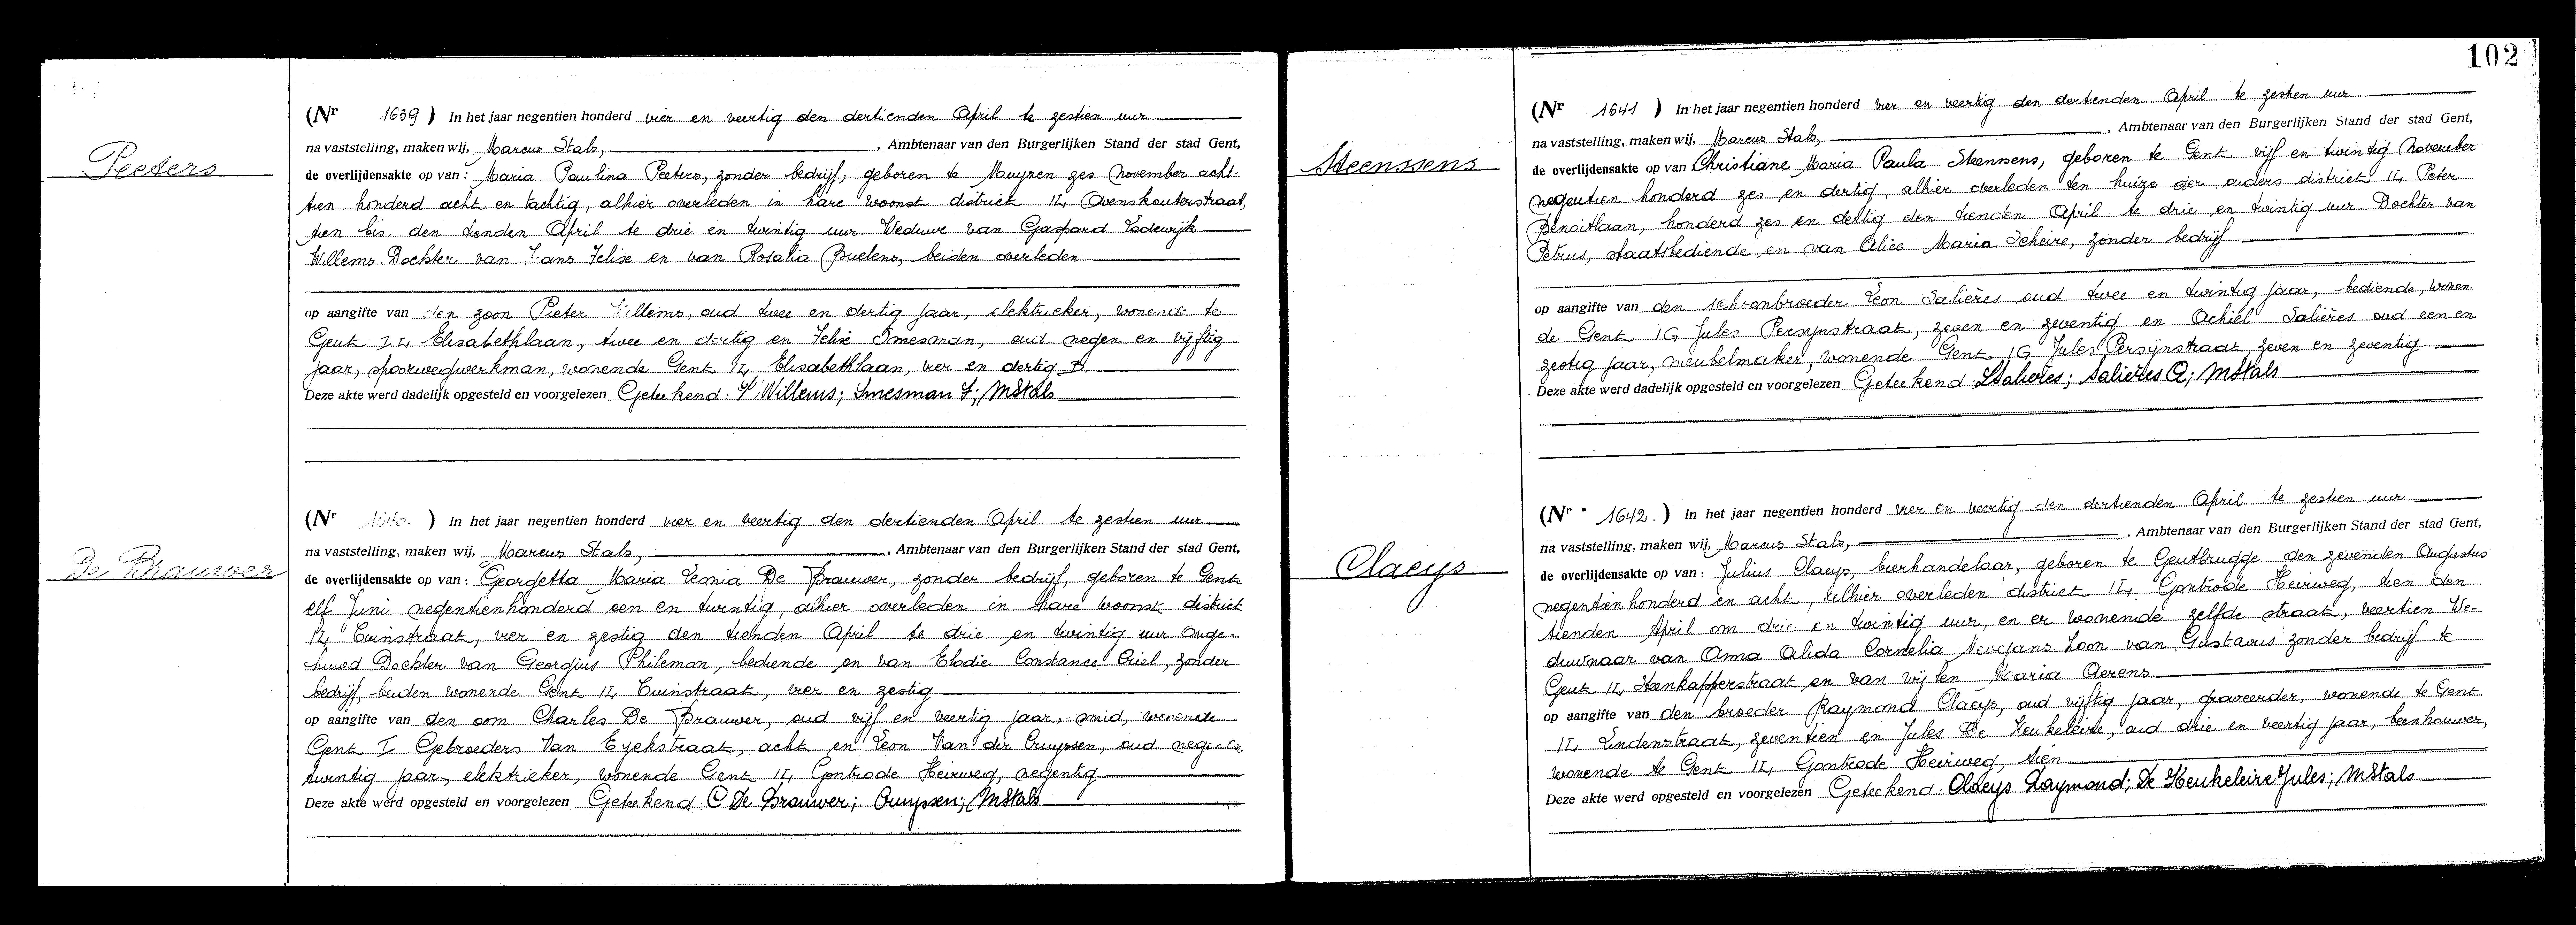 Peeters
(Nr 1639) In het jaar negentien honderd vier en veertig den dertienden April te zestien uur
na vaststelling, maken wij, Marcus Stals, Ambtenaar van den Burgerlijken Stand der stad Gent,
de overlijdensakte op van: Maria Paulina Peeters, zonder bedrijf, geboren te Muyzen zes November acht-
tien honderd acht en tachtig, alhier overleden in hare woonst district IL, Ovenskouterstraat,
tien bis, den tienden April te drie en twintig uur Weduwe van Gaspard Lodewijk
Willems Dochter van Jans Felix en van Rosalia Buelens, beiden overleden
op aangifte van den zoon Pieter Willems, oud twee en dertig jaar, elektrieker, wonende te
Gent IL Elisabethlaan, twee en dertig en Felix Smesman, oud negen en vijftig
jaar, spoorwegwerkman, wonende Gent IL, Elisabethlaan, vier en dertig B
Deze akte werd dadelijk opgesteld en voorgelezen Geteekend: P. Willems; Smesman F; MStals
De Brauwer
(Nr 1640.) In het jaar negentien honderd vier en veertig den dertienden April te zestien uur
na vaststelling, maken wij, Marcus Stals, Ambtenaar van den Burgerlijken Stand der stad Gent,
de overlijdensakte op van: Georgetta Maria Leonia De Brauwer, zonder bedrijf, geboren te Gent
elf Juni negentienhonderd een en twintig, alhier overleden in hare woonst district
IL, Tuinstraat, vier en zestig den tienden April te drie en twintig uur Onge-
huwd Dochter van Georgius Philemon, bediende en van Elodie Constance Criel, zonder
bedrijf, beiden wonende Gent IL Tuinstraat, vier en zestig
op aangifte van den oom Charles De Brauwer, oud vijf en veertig jaar, smid, wonende
Gent I Gebroeders Van Eyckstraat, acht en Leon Van der Cruyssen, oud negen en
twintig jaar, elektrieker, wonende Gent IL Gontrode Heirweg, negentig
Deze akte werd opgesteld en voorgelezen Geteekend: C De Brauwer; Cruyssen; MStals
102
Steenssens
(Nr 1641) In het jaar negentien honderd vier en veertig den dertienden April te zestien uur
na vaststelling, maken wij, Marcus Stals, Ambtenaar van den Burgerlijken Stand der stad Gent,
de overlijdensakte op van Christiane Maria Paula Steenssens, geboren te Gent vijf en twintig November
negentien honderd zes en dertig, alhier overleden ten huize der ouders district IL, Peter
Benoitlaan, honderd zes en dertig den tienden April te drie en twintig uur Dochter van
Petrus, staatsbediende en van Alice Maria Scheire, zonder bedrijf
op aangifte van den schoonbroeder Leon Salières oud twee en twintig jaar, bediende, wonen-
de Gent IG Jules Persynstraat, zeven en zeventig en Achiel Salières oud een en
zestig jaar, meubelmaker, wonende Gent IG Jules Persijnstraat zeven en zeventig
Deze akte werd dadelijk opgesteld en voorgelezen Geteekend LSalieres; Salières A; MStals
Claeys
(Nr 1642.) In het jaar negentien honderd vier en veertig den dertienden April te zestien uur
na vaststelling, maken wij, Marcus Stals, Ambtenaar van den Burgerlijken Stand der stad Gent,
de overlijdensakte op van: Julius Claeys, bierhandelaar, geboren te Gentbrugge den zevenden Augustus
negentienhonderd en acht, alhier overleden district IL, Gontrode Heirweg, tien den
tienden April om drie en twintig uur, en er wonende zelfde straat, veertien We-
duwnaar van Anna Alida Cornelia Nevejans Zoon van Gustavus zonder bedrijf te
Gent IL, Steenkapperstraat en van wijlen Maria Aerens
op aangifte van den broeder Raymond Claeys, oud vijftig jaar, graveerder, wonende te Gent
IL Lindenstraat, zeventien en Jules De Heukeleire, oud drie en veertig jaar, beenhouwer,
wonende te Gent IL, Gontrode Heirweg, tien
Deze akte werd opgesteld en voorgelezen Geteekend: Claeys Raymond; De Heukeleire Jules; MStals